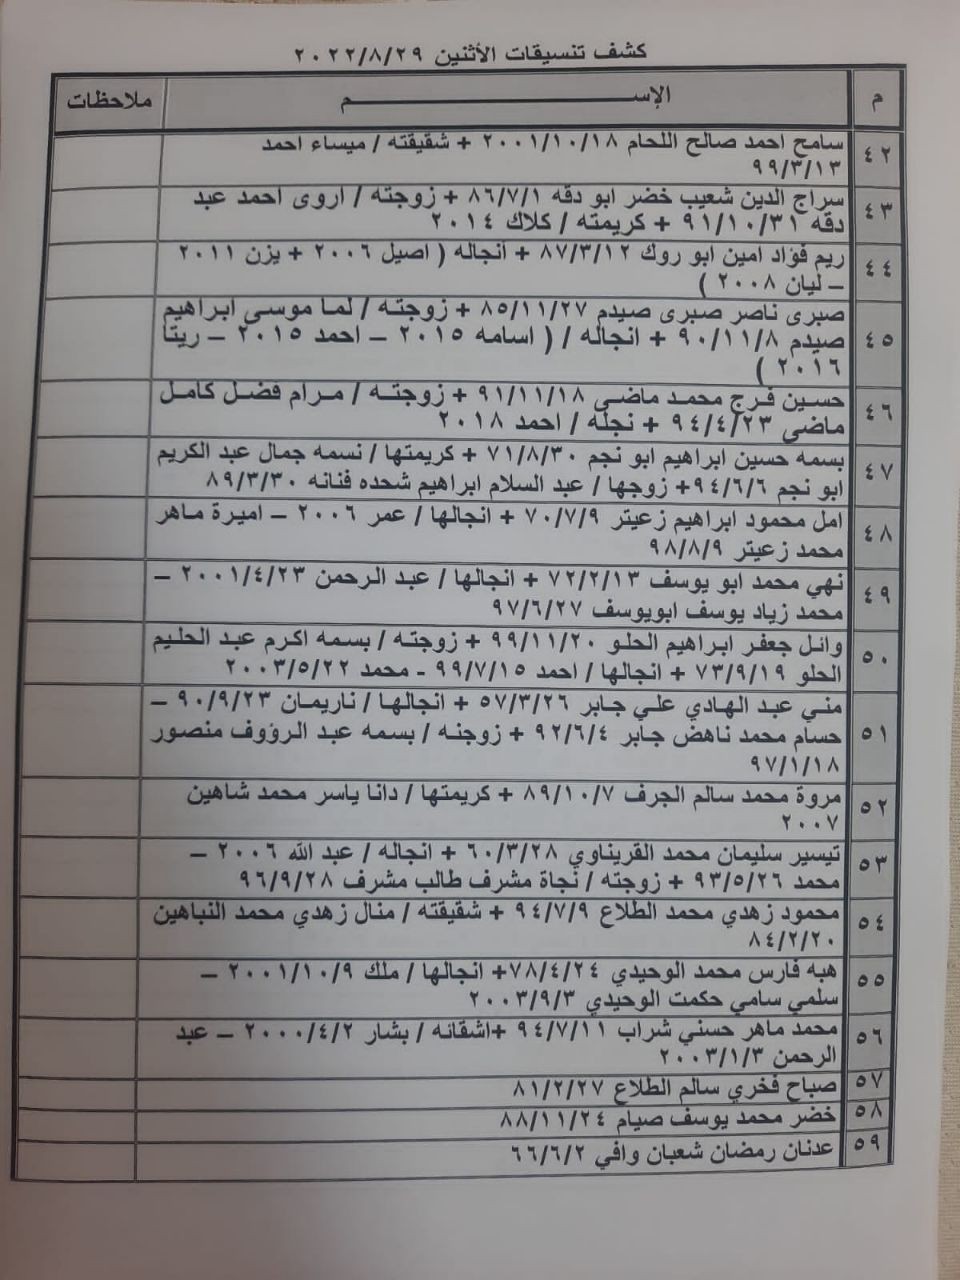 كشف تنسيقات الأثنين ٢٠٢٢/٨/٢٩
م الإســـــم ملاحظات
٤٢ سامح احمد صالح اللحام ٢٠٠١/١٠/١٨ + شقيقته / ميساء احمد
٩٩/٣/١٣
٤٣ سراج الدين شعيب خضر ابو دقه ٨٦/٧/١ + زوجته / اروى احمد عبد
دقه ٩١/١٠/٣١ + كريمته / كلاك ٢٠١٤
٤٤ ريم فؤاد امين ابو روك ٨٧/٣/١٢ + انجاله ( اصيل ٢٠٠٦ + يزن ٢٠١١
– ليان ٢٠٠٨ )
٤٥ صبرى ناصر صبرى صيدم ٨٥/١١/٢٧ + زوجته / لما موسى ابراهيم
صيدم ٩٠/١١/٨ + انجاله / ( اسامه ٢٠١٥ – احمد ٢٠١٥ – ريتا
٢٠١٦ )
٤٦ حسين فرج محمد ماضى ٩١/١١/١٨ + زوجته / مرام فضل كامل
ماضي ٩٤/٤/٢٣ + نجله / احمد ٢٠١٨
٤٧ بسمه حسين ابراهيم ابو نجم ٧١/٨/٣٠ + كريمتها / نسمه جمال عبد الكريم
ابو نجم ٩٤/٦/٦+ زوجها / عبد السلام ابراهيم شحده فنانه ٨٩/٣/٣٠
٤٨ امل محمود ابراهيم زعيتر ٧٠/٧/٩ + انجالها / عمر ٢٠٠٦ – اميرة ماهر
محمد زعيتر ٩٨/٨/٩
٤٩ نهي محمد ابو يوسف ٧٢/٢/١٣ + انجالها / عبد الرحمن ٢٠٠١/٤/٢٣ –
محمد زياد يوسف ابويوسف ٩٧/٦/٢٧
٥٠ وائل جعفر ابراهيم الحلو ٩٩/١١/٢٠ + زوجته / بسمه اكرم عبد الحليم
الحلو ٧٣/٩/١٩ + انجالها / احمد ٩٩/٧/١٥ - محمد ٢٠٠٣/٥/٢٢
٥١ مني عبد الهادي علي جابر ٥٧/٣/٢٦ + انجالها / ناريمان ٩٠/٩/٢٣ –
حسام محمد ناهض جابر ٩٢/٦/٤ + زوجته / بسمه عبد الرؤوف منصور
٩٧/١/١٨
٥٢ مروة محمد سالم الجرف ٨٩/١٠/٧ + كريمتها / دانا ياسر محمد شاهين
٢٠٠٧
٥٣ تيسير سليمان محمد القريناوي ٦٠/٣/٢٨ + انجاله / عبد الله ٢٠٠٦ –
محمد ٩٣/٥/٢٦ + زوجته / نجاة مشرف طالب مشرف ٩٦/٩/٢٨
٥٤ محمود زهدي محمد الطلاع ٩٤/٧/٩ + شقيقته / منال زهدي محمد النباهين
٨٤/٢/٢٠
٥٥ هبه فارس محمد الوحيدي ٧٨/٤/٢٤+ انجالها / ملك ٢٠٠١/١٠/٩ –
سلمي سامي حكمت الوحيدي ٢٠٠٣/٩/٣
٥٦ محمد ماهر حسني شراب ٩٤/٧/١١ +اشقائه / بشار ٢٠٠٠/٤/٢ – عبد
الرحمن ٢٠٠٣/١/٣
٥٧ صباح فخري سالم الطلاع ٨١/٢/٢٧
٥٨ خضر محمد يوسف صيام ٨٨/١١/٢٤
٥٩ عدنان رمضان شعبان وافي ٦٦/٦/٢